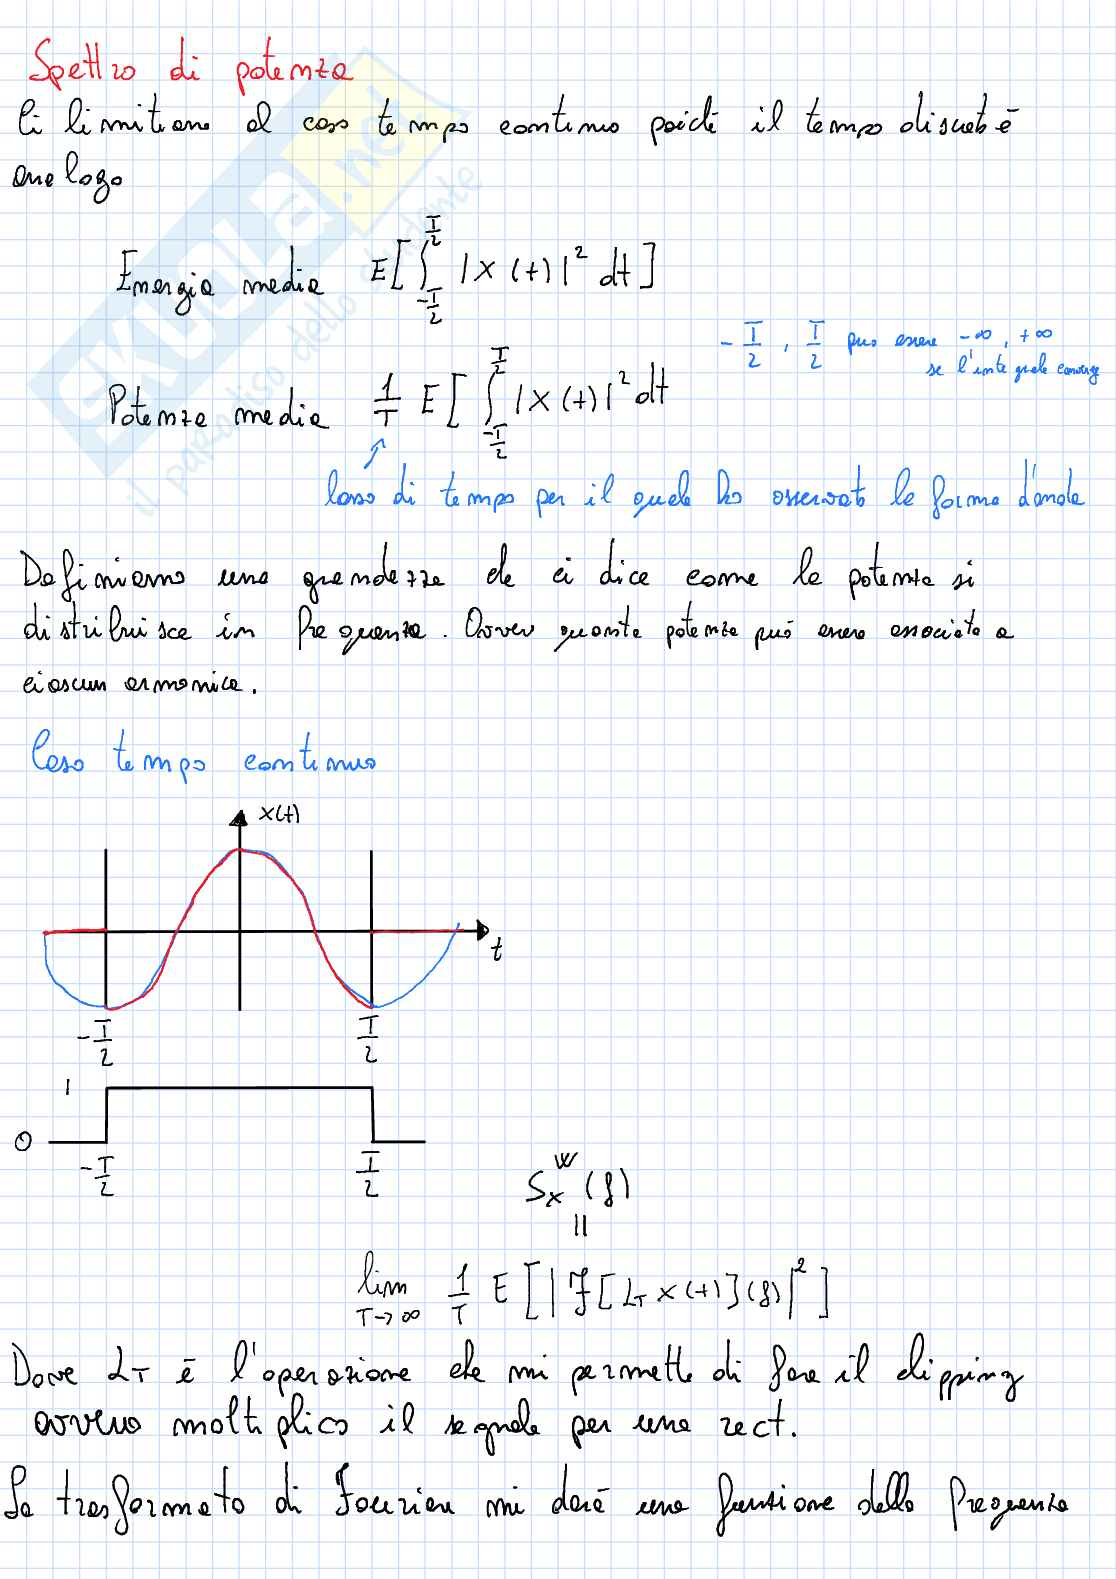 Spettro di potenza
Ci limitiamo al caso tempo continuo poiché il tempo discreto è
analogo
Energia media E[∫_{-T/2}^{T/2} |X(t)|² dt]
-T/2, T/2 può essere -∞, +∞
se l'integrale converge
Potenza media 1/T E[∫_{-T/2}^{T/2} |X(t)|² dt
lasso di tempo per il quale ho osservato la forma d'onda
Definiamo una grandezza che ci dice come la potenza si
distribuisce in frequenza. Ovvero quanta potenza può essere associata a
ciascun armonica.
Caso tempo continuo
X(t)
t
-T/2 T/2
1
0
-T/2 T/2
S_X^W(f)
=
lim_{T→∞} 1/T E[|F[L_T X(t)](f)|²]
Dove L_T è l'operazione che mi permette di fare il clipping
ovvero moltiplico il segnale per una rect.
La trasformata di Fourier mi darà una funzione della frequenza
SKUOLA.net
il paradiso dello studente